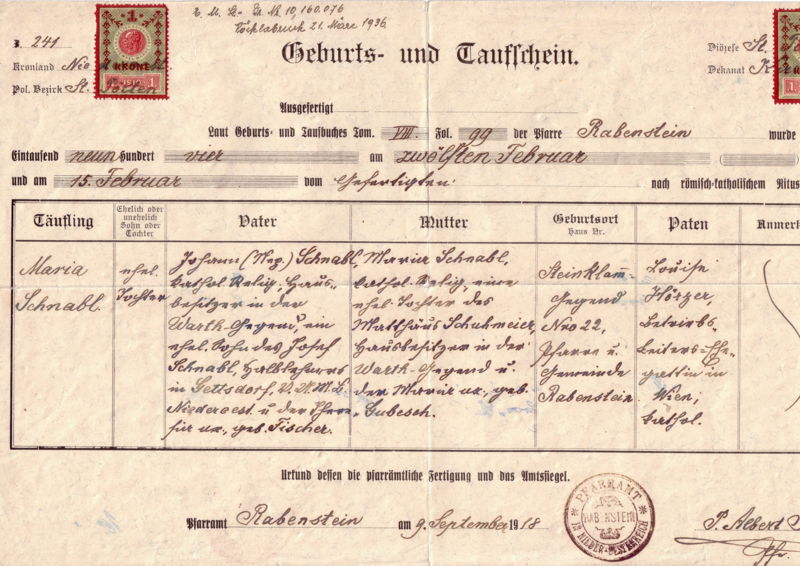 Z. 241
1
KRONE
1
Z. M. Zr. Nr. 10,160.076
Vöcklabruck 21. März 1936
Geburts- und Taufschein.
Diözese St.
Kronland
Dekanat
Pol. Bezirk St. Pölten
Ausgefertigt
Laut Geburts- und Taufbuches Tom. VIII. Fol. 99 der Pfarre Rabenstein wurde
Eintausend neun hundert vier am zwölften Februar
und am 15. Februar vom Gefertigten nach römisch-katholischem Ritus
Täufling
Ehelich oder unehelich Sohn oder Tochter
Vater
Mutter
Geburtsort
Haus Nr.
Paten
Anmerk
Maria
Schnabl.
ehel.
Tochter
Johann (Nep.) Schnabl,
kathol. Relig. Haus-
besitzer in der
Warth-Gegend, ein
ehel. Sohn des Josef
Schnabl, Halblehners
in Gettsdorf, V. U. M. B.
Niederoest. u. der There-
sia ux., geb. Fischer.
Maria Schnabl,
kathol. Relig., eine
ehel. Tochter des
Matthäus Schuhmeier,
Hausbesitzer in der
Warth-Gegend u.
der Maria ux., geb.
Gubesch.
Steinklam-
Gegend
Nro 22,
Pfarre u.
Gemeinde
Rabenstein
Louise
Hötzer,
Betriebs-
leiters-Ehe-
gattin in
Wien,
kathol.
Urkund dessen die pfarrämtliche Fertigung und das Amtssiegel.
Pfarramt Rabenstein am 9. September 1918
PFARRAMT
RABENSTEIN
IN NIEDER-OESTERREICH
P. Albert
Pfr.